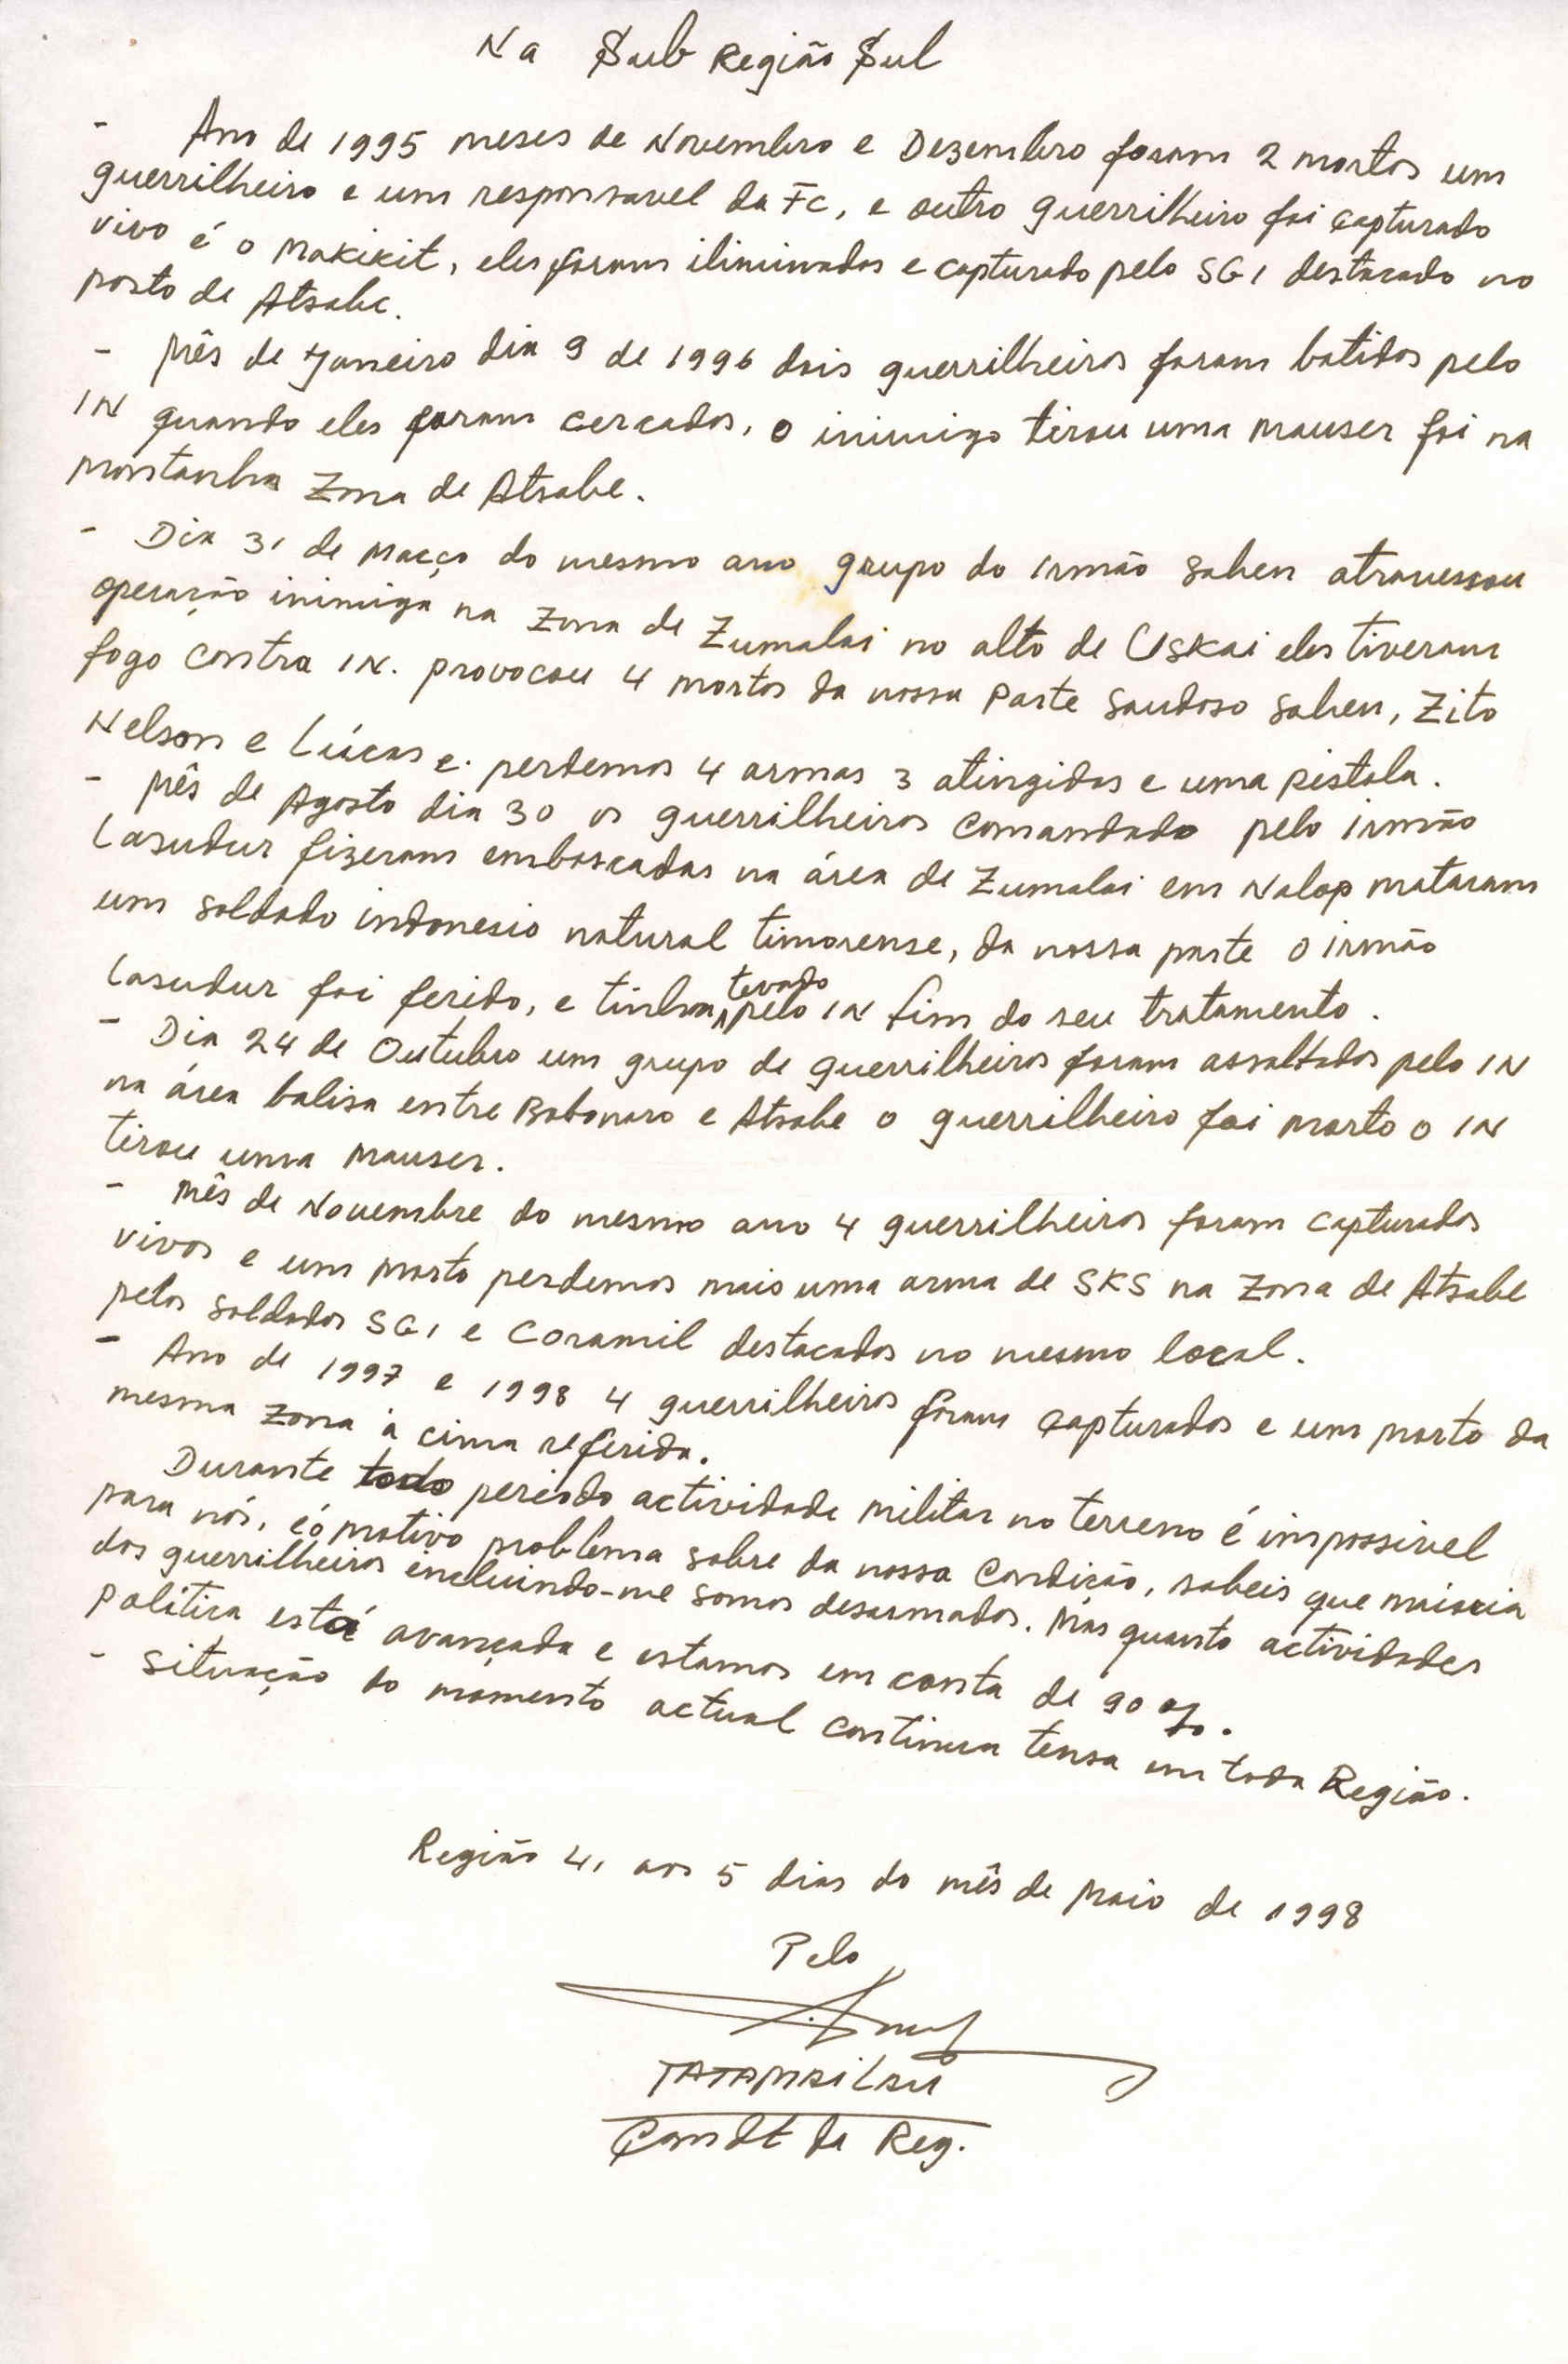 Na Sub Região Sul
- Ano de 1995 meses de Novembro e Dezembro foram 2 mortos um
guerrilheiro e um responsavel da FC, e outro guerrilheiro foi capturado
vivo é o Makikit, eles foram iliminados e capturado pelo SGI destacado no
posto de Atsabe.
- Mês de Janeiro dia 9 de 1996 dois guerrilheiros foram batidos pelo
IN quando eles foram cercados, o inimigo tirou uma mauser foi na
montanha Zona de Atsabe.
- Dia 31 de Março do mesmo ano grupo do irmão Saben atravessou
operação inimiga na Zona de Zumalai no alto de Uskai eles tiveram
fogo contra IN. provocou 4 mortos da nossa parte saudoso Saben, Zito
Nelson e Lúcas e. perdemos 4 armas 3 atingidos e uma pistola.
- Mês de Agosto dia 30 os guerrilheiros comandado pelo irmão
Lasudur fizeram emboscadas na área de Zumalai em Nalop mataram
um soldado indonesio natural timorense, da nossa parte o irmão
Lasudur foi ferido, e tinha levado pelo IN fim do seu tratamento.
- Dia 24 de Outubro um grupo de guerrilheiros foram assaltados pelo IN
na área balisa entre Bobonaro e Atsabe o guerrilheiro foi morto o IN
tirou uma mauser.
- Mês de Novembre do mesmo ano 4 guerrilheiros foram capturados
vivos e um morto perdemos mais uma arma de SKS na Zona de Atsabe
pelos soldados SGI e Coramil destacados no mesmo local.
- Ano de 1997 e 1998 4 guerrilheiros foram capturados e um morto da
mesma zona à cima referida.
Durante todo periodo actividade militar no terreno é impossivel
para nós, é o motivo problema sobre da nossa condição, sabeis que maioria
dos guerrilheiros incluindo-me somos desarmados. Mas quanto actividades
politica está avançada e estamos em conta de 90 %.
- Situação do momento actual continua tensa em toda Região.
Região 4, aos 5 dias do mês de Maio de 1998
Pelo
TATAMAILAU
Comdt da Reg.